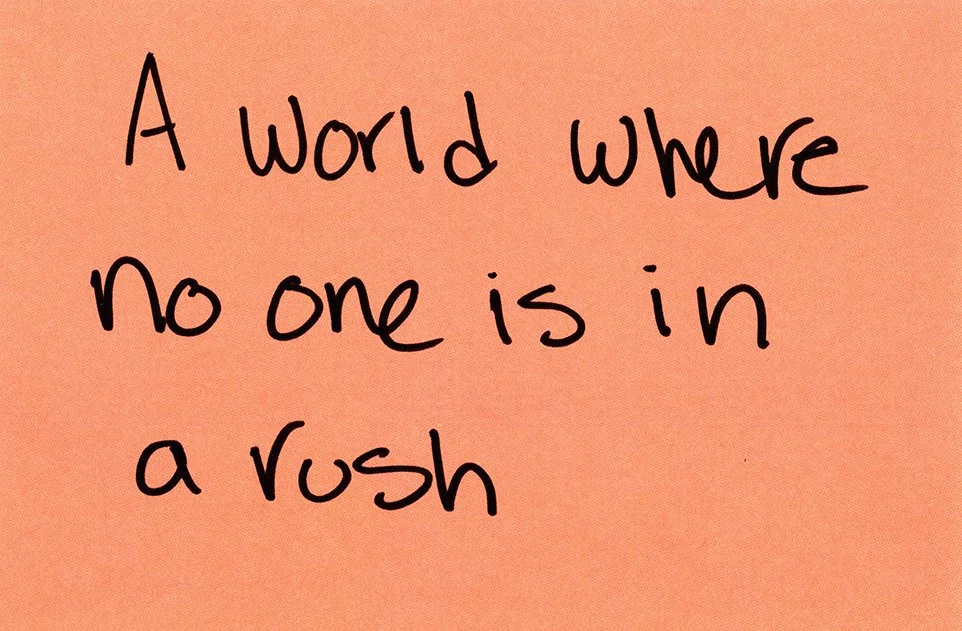 A world where
no one is in
a rush